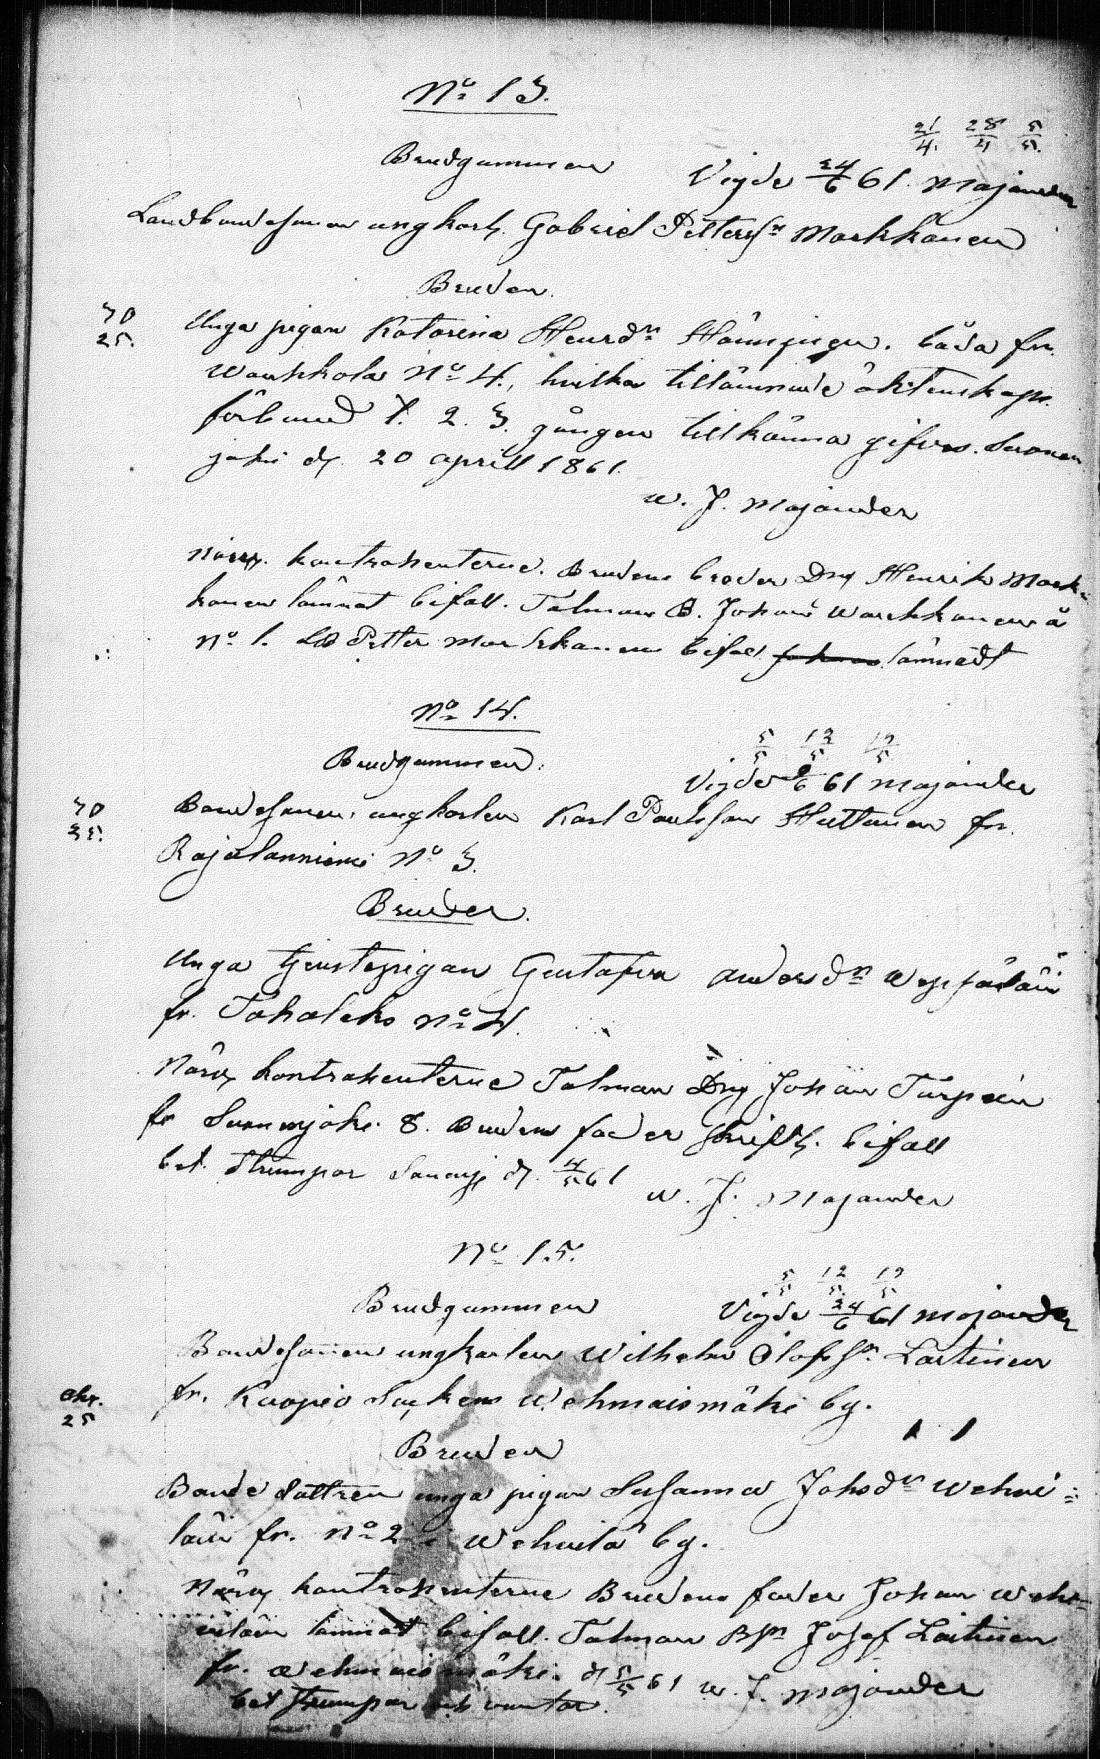 No 13.
21/4. 28/4 5/5.
Brudgummen Vigde 24/6 61. Majander
Landbondesonen ungkarl. Gabriel Petterssn Markkanen
Bruden.
70
25.
Unga pigan Katarina Henrdn
båda fr.
No 4., hvilka tillämnade äktenskaps
förbund 1. 2. 3. gången tillkänna gifves. Suonen
joki d. 20 april 1861.
W. J. Majander
Närv. kontrahenterne. Brudens broder Drg Henrik Mark-
kanen lämnat bifall. Talman B. Johan Markkanen å
No 1. LB Petter Markkanen bifall lämnadt
No 14.
Brudgummen.
5/5 12/5 19/5
Vigde 61 Majander
70
Bondesonen, ungkarlen Karl Paulsson Huttunen fr.
Rajalanniemi No 3.
Bruden.
Unga tjenstepigan Gustafva Andersdn Wepsäläin
fr. No 4.
Närv. kontrahenterne Talman Drg Johan Turpein
fr Suonenjoki 8. Brudens fader skriftl. bifall
bet. strumpor Suonenj. d. 4/5 61
W. J. Majander
No 15.
5/5 12/5. 19/5
Brudgummen Vigde 24/6 61 Majander
Bondesonen ungkarlen Wilhelm Olofsn Laitinen
fr. Kuopio Sockens Wehmaismäki by.
25
Bruden
Bonde dottren unga pigan Susanna Johsdn Wehvi-
läin fr. No 2 i Wehvilä by.
Närv. kontrahenterne Brudens fader Johan Weh-
viläin lämnat bifall. Talman Bsn Josef Laitinen
fr. Wehmaismäki. d 5/5 61 W. J. Majander
bet strumpor och vantar.